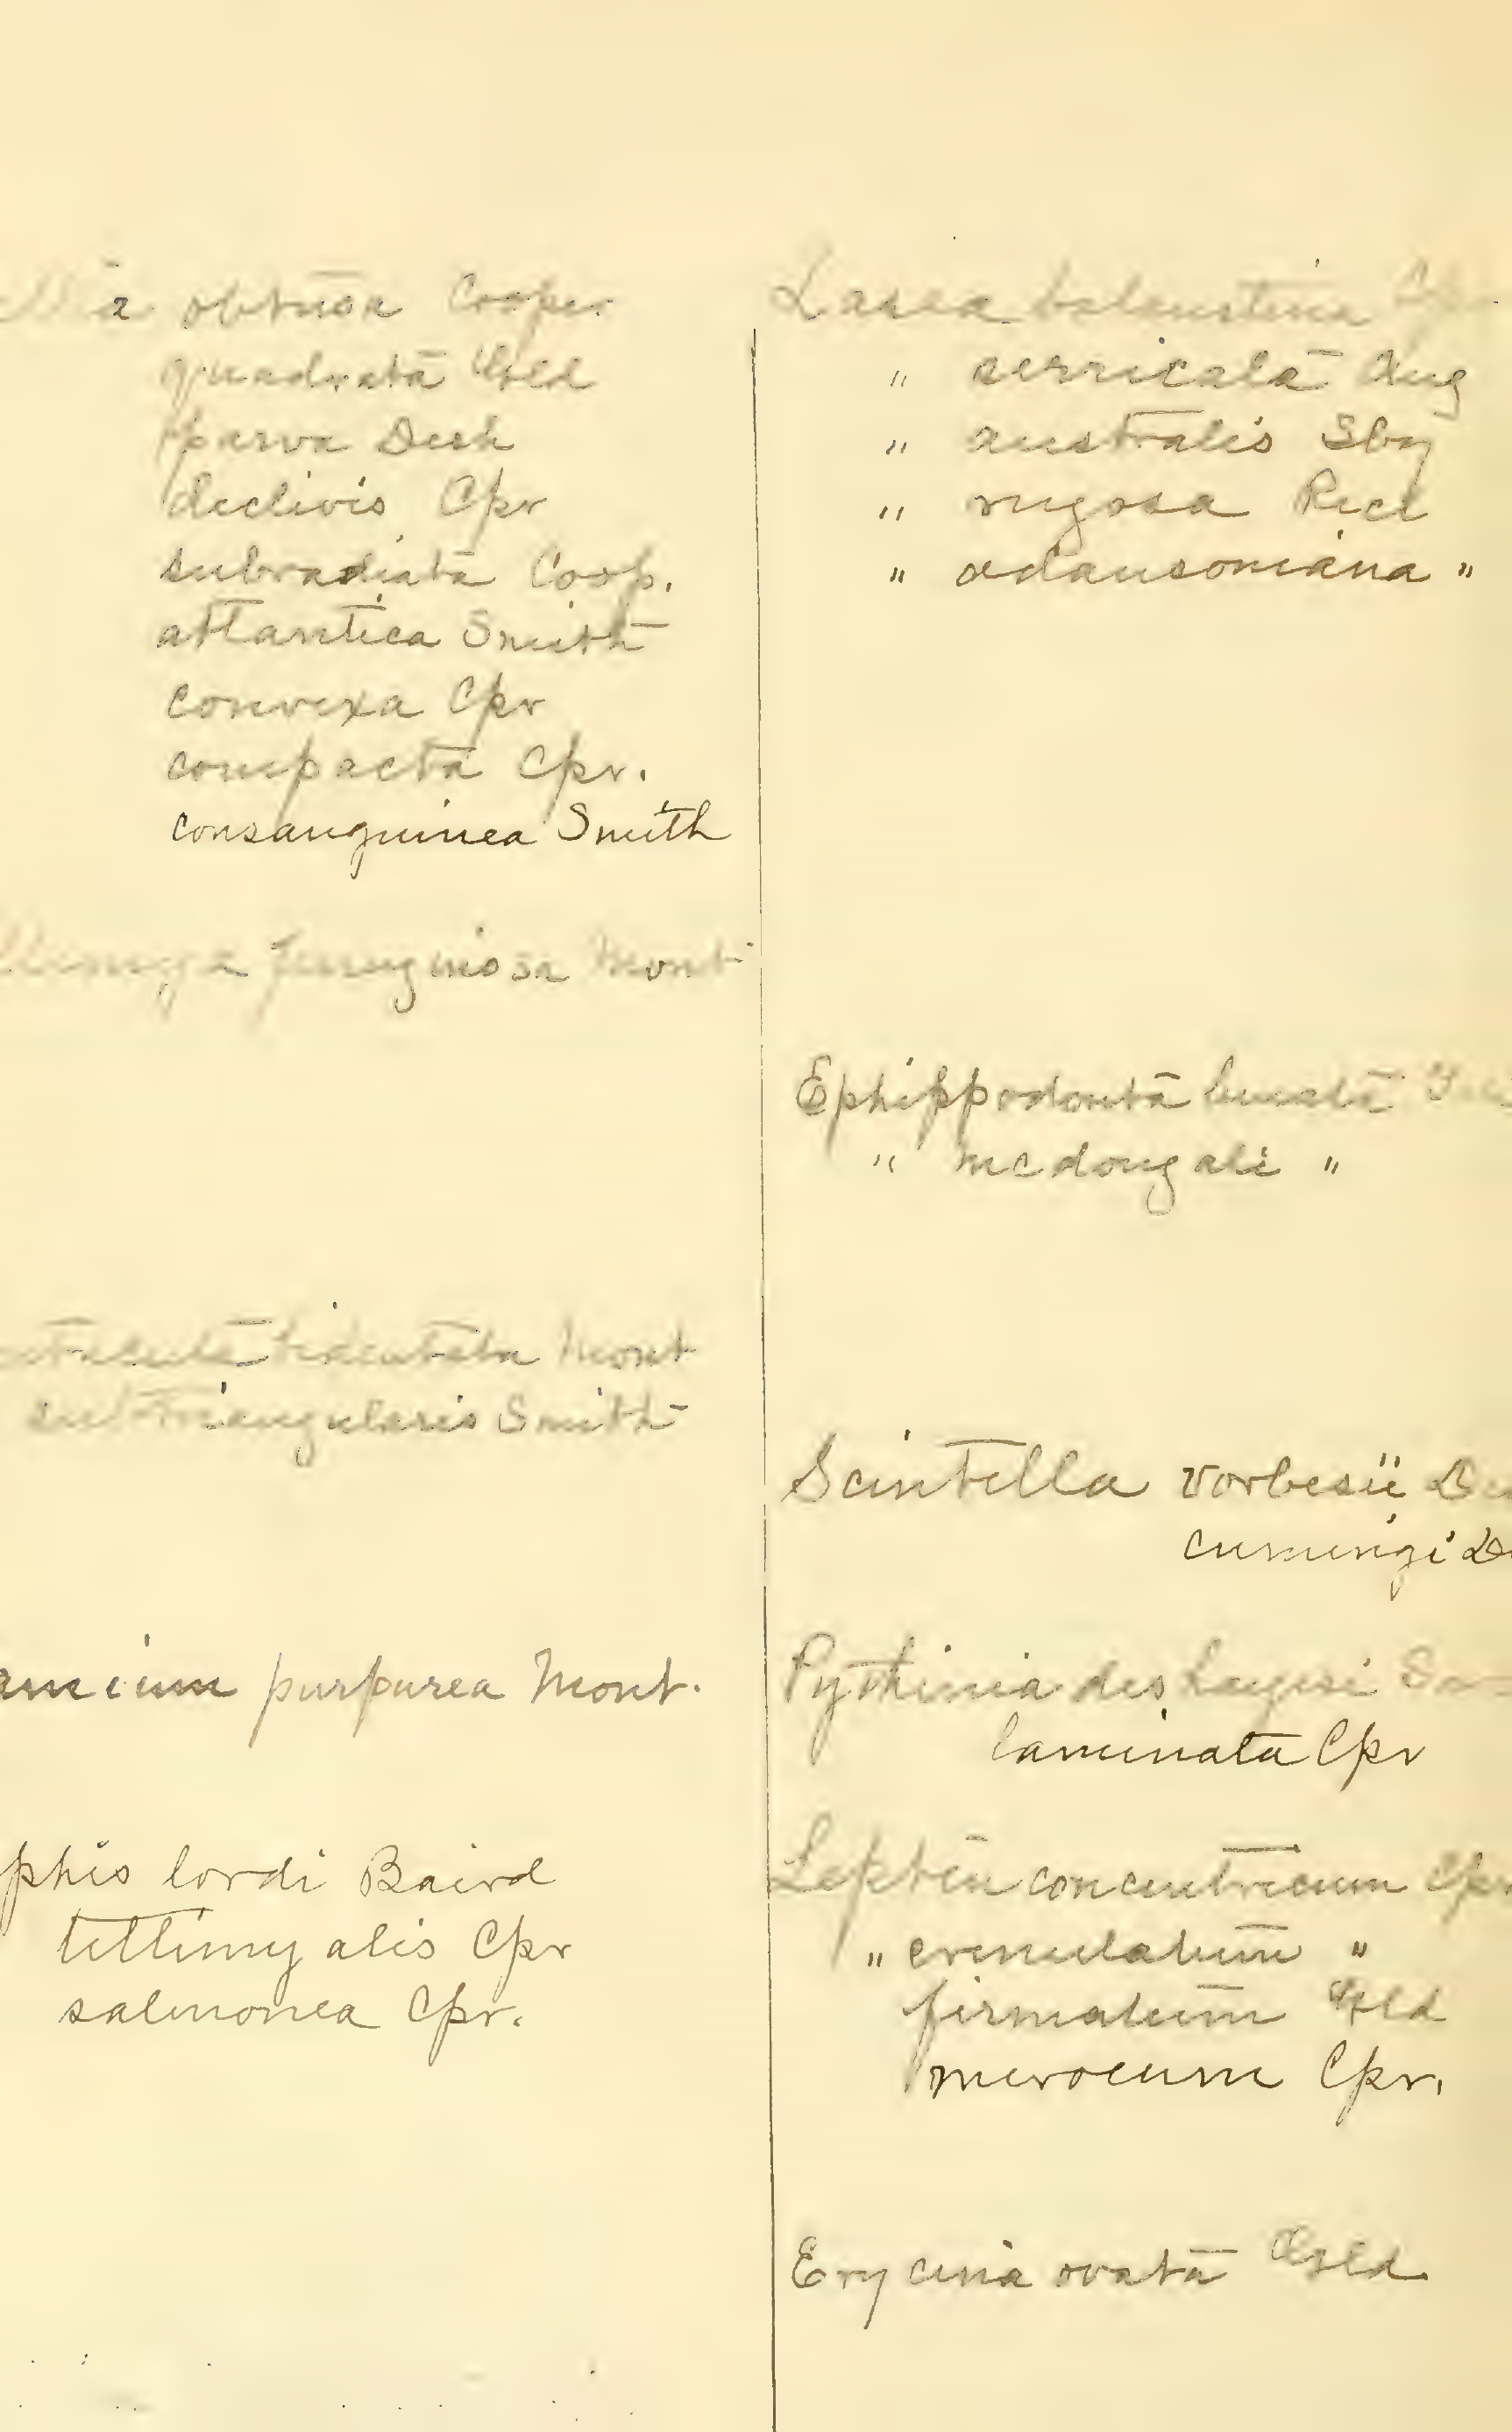 obtusa Cooper
quadrata Gld
parva Desh
declivis Cpr
subradiata Coop.
atlantica Smith
convexa Cpr
compacta Cpr.
consanguinea Smith
ferruginosa Mont
bidentata Mont
subtriangularis Smith
purpurea Mont.
phis lordi Baird
tellimyalis Cpr
salmonea Cpr.
Lasea
" australis Sby
" rugosa Recl
" adansoniana "
Ephippodonta lunata
" mcdougali "
Scintilla
cumingi
Pythinia deshayesi
laminata Cpr
Lepton concentricum Cpr
" crenulatum "
firmatum Gld
meroeum Cpr.
Erycina ovata Gld